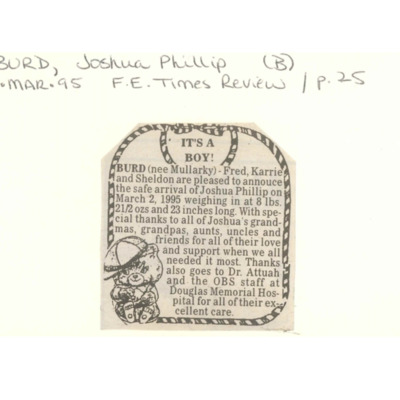 BURD, Joshua Phillip (B)
.MAR.95 F.E. Times Review / p.25
IT'S A
BOY!
BURD (nee Mullarky) - Fred, Karrie
and Sheldon are pleased to annouce
the safe arrival of Joshua Phillip on
March 2, 1995 weighing in at 8 lbs.
21/2 ozs and 23 inches long. With spe-
cial thanks to all of Joshua's grand-
mas, grandpas, aunts, uncles and
friends for all of their love
and support when we all
needed it most. Thanks
also goes to Dr. Attuah
and the OBS staff at
Douglas Memorial Hos-
pital for all of their ex-
cellent care.